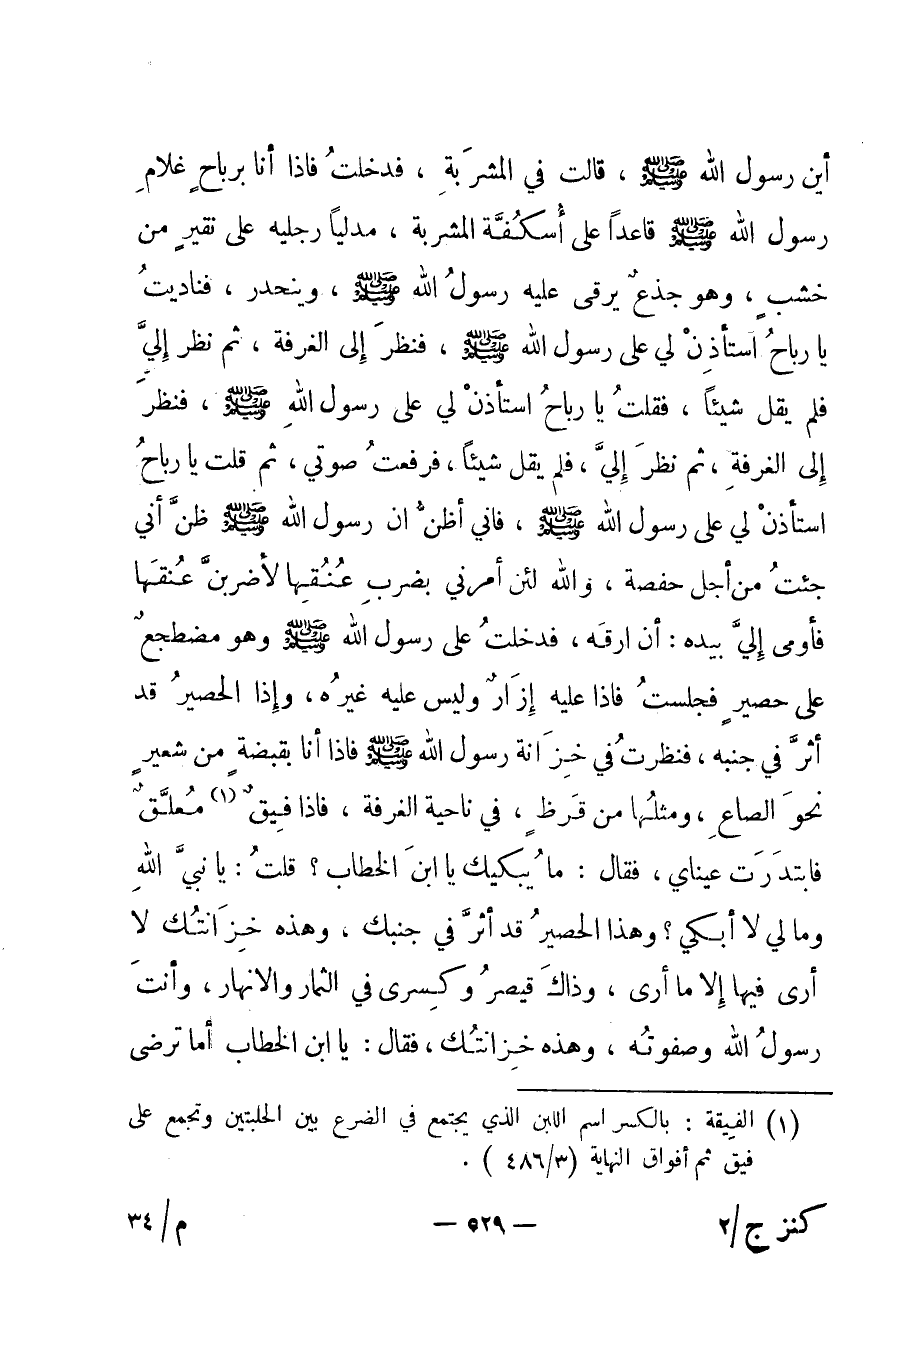 أين رسول الله ﷺ ، قالت في المشرَبةِ ، فدخلتُ فاذا أنا برباحٍ غلامِ
رسول الله ﷺ قاعداً على أُسكُفَّة المشربة ، مدلياً رجليه على نقيرٍ من
خشبٍ ، وهو جذعٌ يرقى عليه رسولُ الله ﷺ ، وينحدر ، فناديتُ
يا رباحُ استأذِنْ لي على رسول الله ﷺ ، فنظرَ إلى الغرفة ، ثم نظر إليَّ
فلم يقل شيئاً ، فقلتُ يا رباحُ استأذنْ لي على رسول اللهِ ﷺ ، فنظرَ
إلى الغرفةِ ، ثم نظرَ إليَّ ، فلم يقل شيئاً ، فرفعتُ صوتي ، ثم قلت يا رباحُ
استأذنْ لي على رسول الله ﷺ ، فاني أظنُّ ان رسول الله ﷺ ظنَّ أني
جئتُ من أجل حفصة ، والله لئن أمرني بضربِ عُنُقِها لأضربنَّ عُنقَها
فأومى إليَّ بيده : أن ارقَه ، فدخلتُ على رسول الله ﷺ وهو مضطجعٌ
على حصيرٍ فجلستُ فاذا عليه إزارٌ وليس عليه غيرُه ، وإذا الحصيرُ قد
أثرَّ في جنبه ، فنظرتُ في خِزَانة رسول الله ﷺ فاذا أنا بقبضةٍ من شعيرٍ
نحوَ الصاعِ ، ومثلُها من قَرَظٍ ، في ناحية الغرفة ، فاذا فيقٌ (١) مُعلَّقٌ
فابتدَرَت عيناي ، فقال : ما يُبكيك يا ابنَ الخطاب ؟ قلتُ : يا نبيَّ اللهِ
وما لي لا أبكي ؟ وهذا الحصيرُ قد أثرَّ في جنبك ، وهذه خزَانتُك لا
أرى فيها إلا ما أرى ، وذاكَ قيصرُ وكِسرى في الثمار والانهار ، وأنتَ
رسولُ الله وصفوتُه ، وهذه خِزانتُك ، فقال : يا ابن الخطاب أما ترضى
(١) الفيقة : بالكسر اسم اللبن الذي يجتمع في الضرع بين الحلبتين وتجمع على
فيق ثم أفواق النهاية (٤٨٦/٣ ) .
كنز ج/٢ — ٥٢٩ — م/٣٤